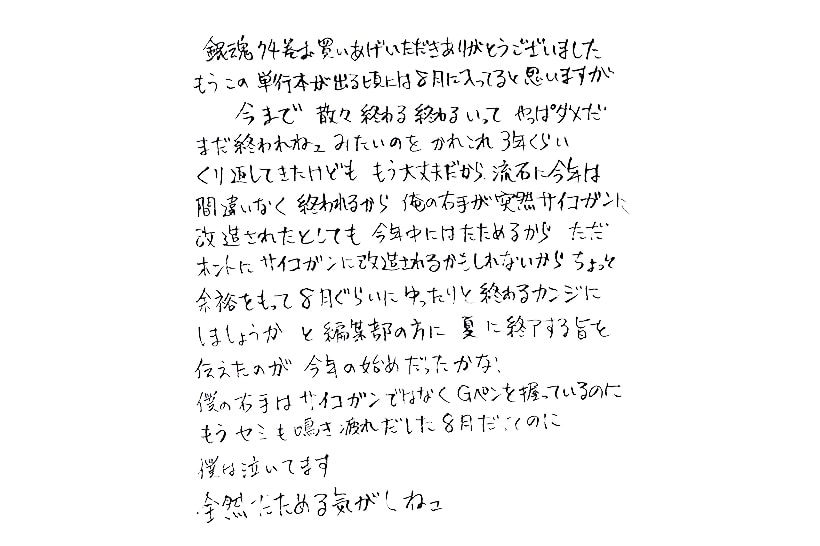 銀魂74巻お買いあげいただきありがとうございました
もうこの単行本が出る頃には8月に入ってると思いますが
今まで 散々 終わる終わるいって やっぱダメだ
まだ終われねェみたいのを かれこれ3年くらい
くり返してきたけども もう大丈夫だから 流石に今年は
間違いなく 終われるから 俺の右手が突然サイコガンに
改造されたとしても 今年中にはたためるから ただ
ホントに サイコガンに改造されるかもしれないから ちょっと
余裕をもって 8月ぐらいに ゆったりと終わるカンジに
しましょうか と 編集部の方に 夏に終了する旨を
伝えたのが 今年の始めだったかな、
僕の右手は サイコガンではなく Gペンを握っているのに
もう セミも鳴き疲れだした8月だってのに
僕は泣いてます
全然 たためる気がしねェ